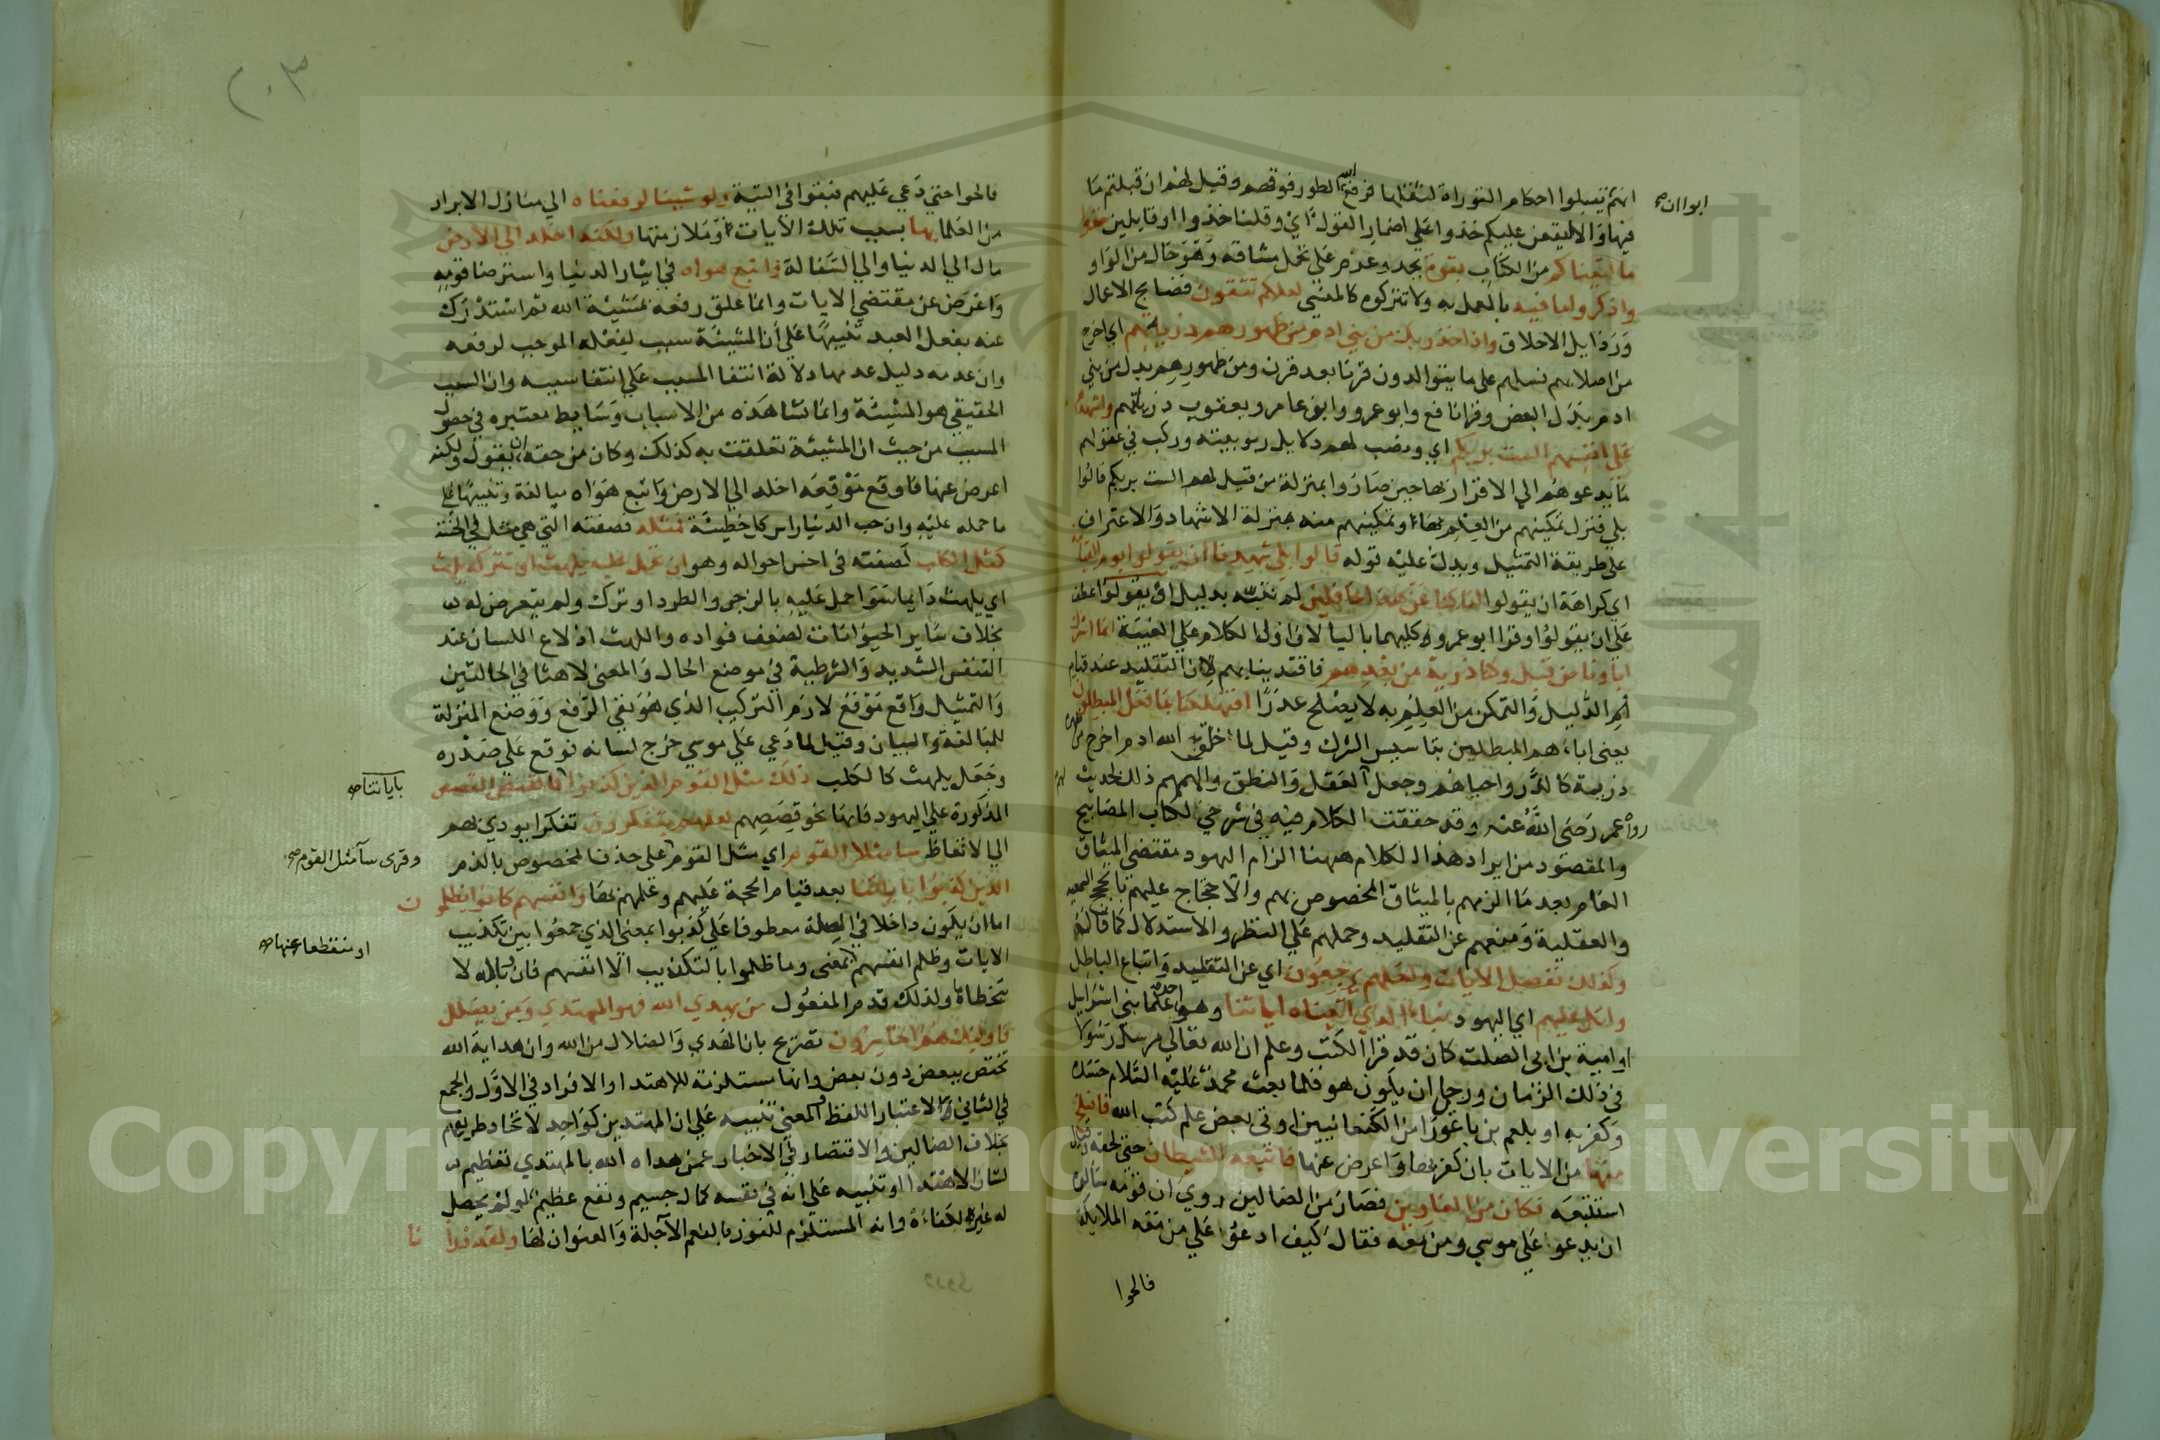 انهم يقبلوا احكام التوراة لثقلها فرفع الله الطور فوقهم وقيل لهم ان قبلتم ما
فيها والا ليقعن عليكم خذوا على اضمار القول اي وقلنا خذوا او قايلين خذوا
ما اتيناكم من الكتاب بقوة بجد وعزم على تحمل مشاقه وهو حال من الواو
واذكروا ما فيه بالعمل به ولا تتركوه كالمنسي لعلكم تتقون قبايح الاعمال
ورذايل الاخلاق واذ اخذ ربك من بني ادم من ظهورهم ذريتهم اي اخرج
من اصلابهم نسلهم على ما يتوالدون قرنا بعد قرن ومن ظهورهم بدل من بني
ادم بدل البعض وقرا نافع وابو عمرو وابن عامر ويعقوب ذرياتهم واشهدهم
على انفسهم الست بربكم اي ونصب لهم دلايل ربوبيته وركب في عقولهم
ما يدعوهم الى الاقرار بها حين صاروا بمنزلة من قيل لهم الست بربكم قالوا
بلى فنزل تمكينهم من العلم بها وتمكينهم منه منزلة الاشهاد والاعتراف
على طريقة التمثيل ويدل عليه قوله قالوا بلى شهدنا ان يقولوا يوم القيامة
اي كراهة ان يقولوا انا كنا عن هذا غافلين لم ننبه بدليل او يقولوا عطف
على ان يقولوا وقرا ابو عمرو كليهما باليا لان اول الكلام على الغيبة انما اشرك
اباونا من قبل وكنا ذرية من بعدهم فاقتدينا بهم لان التقليد عند قيام
الدليل والتمكن من العلم به لا يصلح عذرا افتهلكنا بما فعل المبطلون
يعني اباءهم المبطلين بتاسيس الشرك وقيل لما خلق الله ادم اخرج من ظهره
ذرية كالذر واحياهم وجعل لهم العقل والنطق والهمهم ذلك لحديث
رواه عمر رضي الله عنه وقد حققت الكلام فيه في شرحي لكتاب المصابيح
والمقصود من ايراد هذا الكلام ههنا الزام اليهود مقتضى الميثاق
العام بعد ما الزمهم بالميثاق المخصوص بهم والاحتجاج عليهم بالحجج السمعية
والعقلية ومنعهم عن التقليد وحملهم على النظر والاستدلال كما قال
وكذلك نفصل الايات ولعلهم يرجعون اي عن التقليد واتباع الباطل
واتل عليهم اي اليهود نبا الذي اتيناه اياتنا وهو احد علما بني اسرائيل
او امية بن ابي الصلت كان قد قرا الكتب وعلم ان الله تعالى مرسل رسولا
في ذلك الزمان ورجا ان يكون هو فلما بعث محمد عليه السلام حسده
وكفر به او بلعم بن باعورا من الكنعانيين اوتي بعض علم كتب الله فانسلخ
منها من الايات بان كفر بها واعرض عنها فاتبعه الشيطان حتى لحقه وقيل
استتبعه فكان من الغاوين فصار من الضالين روي ان قومه سالوه
ان يدعو على موسى ومن معه فقال كيف ادعو على من معه الملايكة
فالحوا
فالحوا حتى دعى عليهم فبقوا في التيه ولو شينا لرفعناه الى منازل الابرار
من العلما بها بسبب تلك الايات وملازمتها ولكنه اخلد الى الارض
مال الى الدنيا والى السفالة واتبع هواه في ايثار الدنيا واسترضا قومه
واعرض عن مقتضى الايات وانما علق رفعه بمشيئة الله ثم استدرك
عنه بفعل العبد تنبيها على ان المشيئة سبب لفعله الموجب لرفعه
وان عدمه دليل عدمها دلالة انتفا المسبب على انتفا سببه وان السبب
الحقيقي هو المشيئة وان ما نشاهده من الاسباب وسايط معتبره في حصول
المسبب من حيث ان المشيئة تعلقت به كذلك وكان من حقه ان يقول ولكنه
اعرض عنها فاوقع موقعه اخلد الى الارض واتبع هواه مبالغة وتنبيها على
ما حمله عليه وان حب الدنيا راس كل خطيئة فمثله فصفته التي هي مثل في الخسة
كمثل الكلب كصفته في اخس احواله وهو ان تحمل عليه يلهث او تتركه يلهث
اي يلهث دايما سوا حمل عليه بالزجر والطرد او ترك ولم يتعرض له
بخلاف ساير الحيوانات لضعف فواده واللهث ادلاع اللسان عند
التنفس الشديد والشرطية في موضع الحال والمعنى لاهثا في الحالتين
والتمثيل واقع موقع لازم التركيب الذي هو نفي الرفع ووضع المنزلة
للمبالغة والبيان وقيل لما دعى على موسى خرج لسانه فوقع على صدره
وجعل يلهث كالكلب ذلك مثل القوم الذين كذبوا باياتنا فاقصص القصص
المذكورة على اليهود فانها نحو قصصهم لعلهم يتفكرون تفكرا يودي بهم
الى الاتعاظ ساء مثلا القوم اي مثل القوم على حذف المخصوص بالذم
الذين كذبوا باياتنا بعد قيام الحجة عليهم وعلمهم بها وانفسهم كانوا يظلمون
اما ان يكون داخلا في الصلة معطوفا على كذبوا بمعنى الذي جمعوا بين تكذيب
الايات وظلم انفسهم بمعنى وما ظلموا بالتكذيب الا انفسهم فان وباله لا
يتخطاها ولذلك قدم المفعول من يهدي الله فهو المهتدي ومن يضلل
فاوليك هم الخاسرون تصريح بان الهدي والضلال من الله وان هداية الله
تختص ببعض دون بعض وانها مستلزمة للاهتدا والافراد في الاول والجمع
في الثاني لاعتبار اللفظ والمعنى تنبيه على ان المهتدين كواحد لاتحاد طريقهم
بخلاف الضالين والاقتصار في الاخبار عمن هداه الله بالمهتدي تعظيم
لشان الاهتدا وتنبيه على انه في نفسه كمال جسيم ونفع عظيم لو لم يحصل
له غيره لكفاه وانه المستلزم للفوز بالنعم الآجلة والعنوان لها ولقد ذرانا
ابوا ان صح
باياتنا صح
وقرى ساء مثل القوم صح
او منقطعا عنها صح
٢٠٣
Copyright © King Saud University